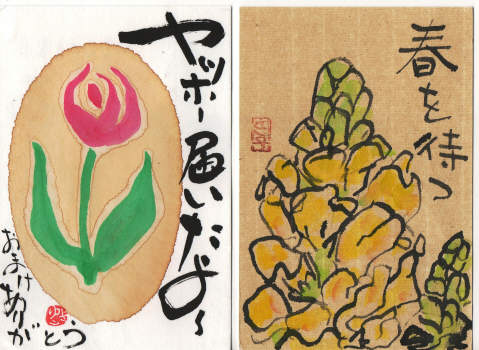 ヤッホー届いたよ〜
おまけありがとう
春を待つ